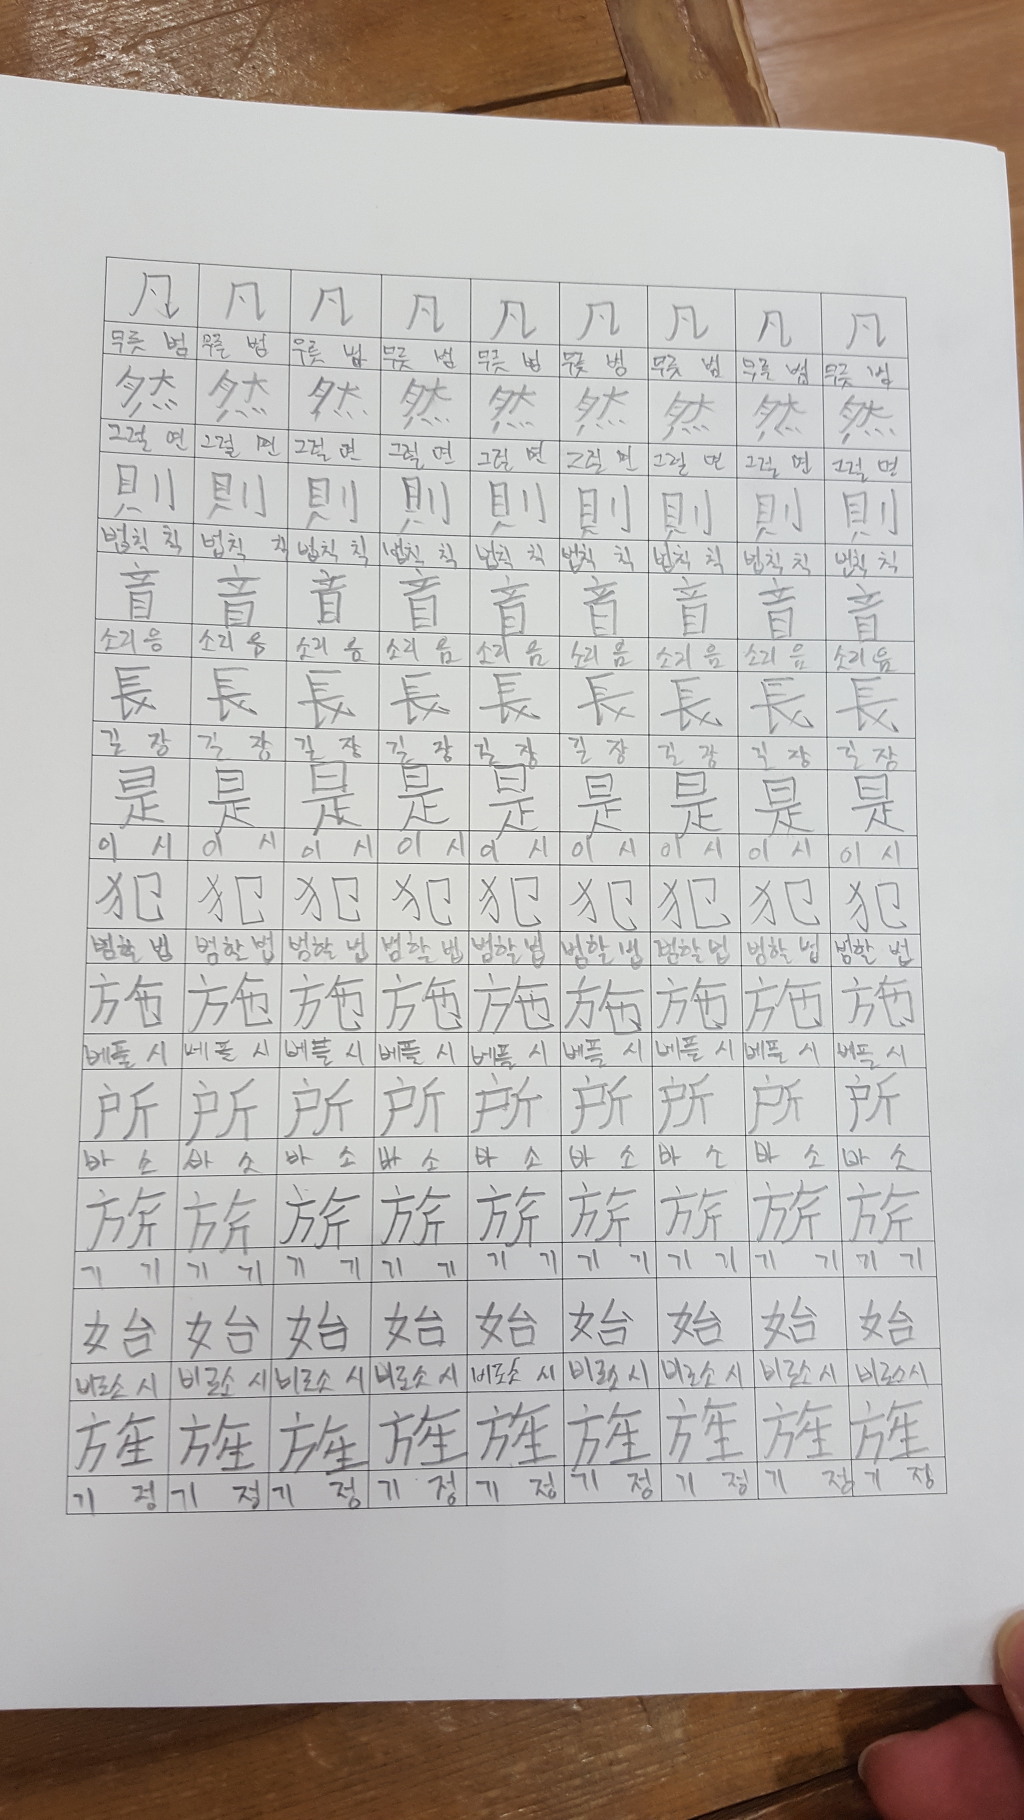 凡 凡 凡 凡 凡 凡 凡 凡 凡
무릇 범 무릇 범 무릇 범 무릇 범 무릇 범 무릇 범 무릇 범 무릇 범 무릇 범
然 然 然 然 然 然 然 然 然
그럴 연 그럴 연 그럴 연 그럴 연 그럴 연 그럴 연 그럴 연 그럴 연 그럴 연
則 則 則 則 則 則 則 則 則
법칙 칙 법칙 칙 법칙 칙 법칙 칙 법칙 칙 법칙 칙 법칙 칙 법칙 칙 법칙 칙
音 音 音 音 音 音 音 音 音
소리 음 소리 음 소리 음 소리 음 소리 음 소리 음 소리 음 소리 음 소리 음
長 長 長 長 長 長 長 長 長
길 장 길 장 길 장 길 장 길 장 길 장 길 장 길 장 길 장
是 是 是 是 是 是 是 是 是
이 시 이 시 이 시 이 시 이 시 이 시 이 시 이 시 이 시
犯 犯 犯 犯 犯 犯 犯 犯 犯
범할 범 범할 범 범할 범 범할 범 범할 범 범할 범 범할 범 범할 범 범할 범
施 施 施 施 施 施 施 施 施
베플 시 베플 시 베플 시 베플 시 베플 시 베플 시 베플 시 베플 시 베플 시
所 所 所 所 所 所 所 所 所
바 소 바 소 바 소 바 소 바 소 바 소 바 소 바 소 바 소
旂 旂 旂 旂 旂 旂 旂 旂 旂
기 기 기 기 기 기 기 기 기 기 기 기 기 기 기 기 기 기
始 始 始 始 始 始 始 始 始
비로소 시 비로소 시 비로소 시 비로소 시 비로소 시 비로소 시 비로소 시 비로소 시 비로소 시
旌 旌 旌 旌 旌 旌 旌 旌 旌
기 정 기 정 기 정 기 정 기 정 기 정 기 정 기 정 기 정